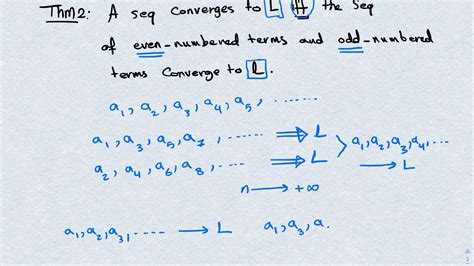 Thm2: A seq converges to L iff the seq
of even-numbered terms and odd-numbered
terms converge to L.
a₁, a₂, a₃, a₄, a₅, ......
a₁, a₃, a₅, a₇, ...... ⟹ L
a₂, a₄, a₆, a₈, ...... ⟹ L
> a₁, a₂, a₃, a₄, ... ⟶ L
n ⟶ +∞
a₁, a₂, a₃, ..... ⟶ L a₁, a₃, a.